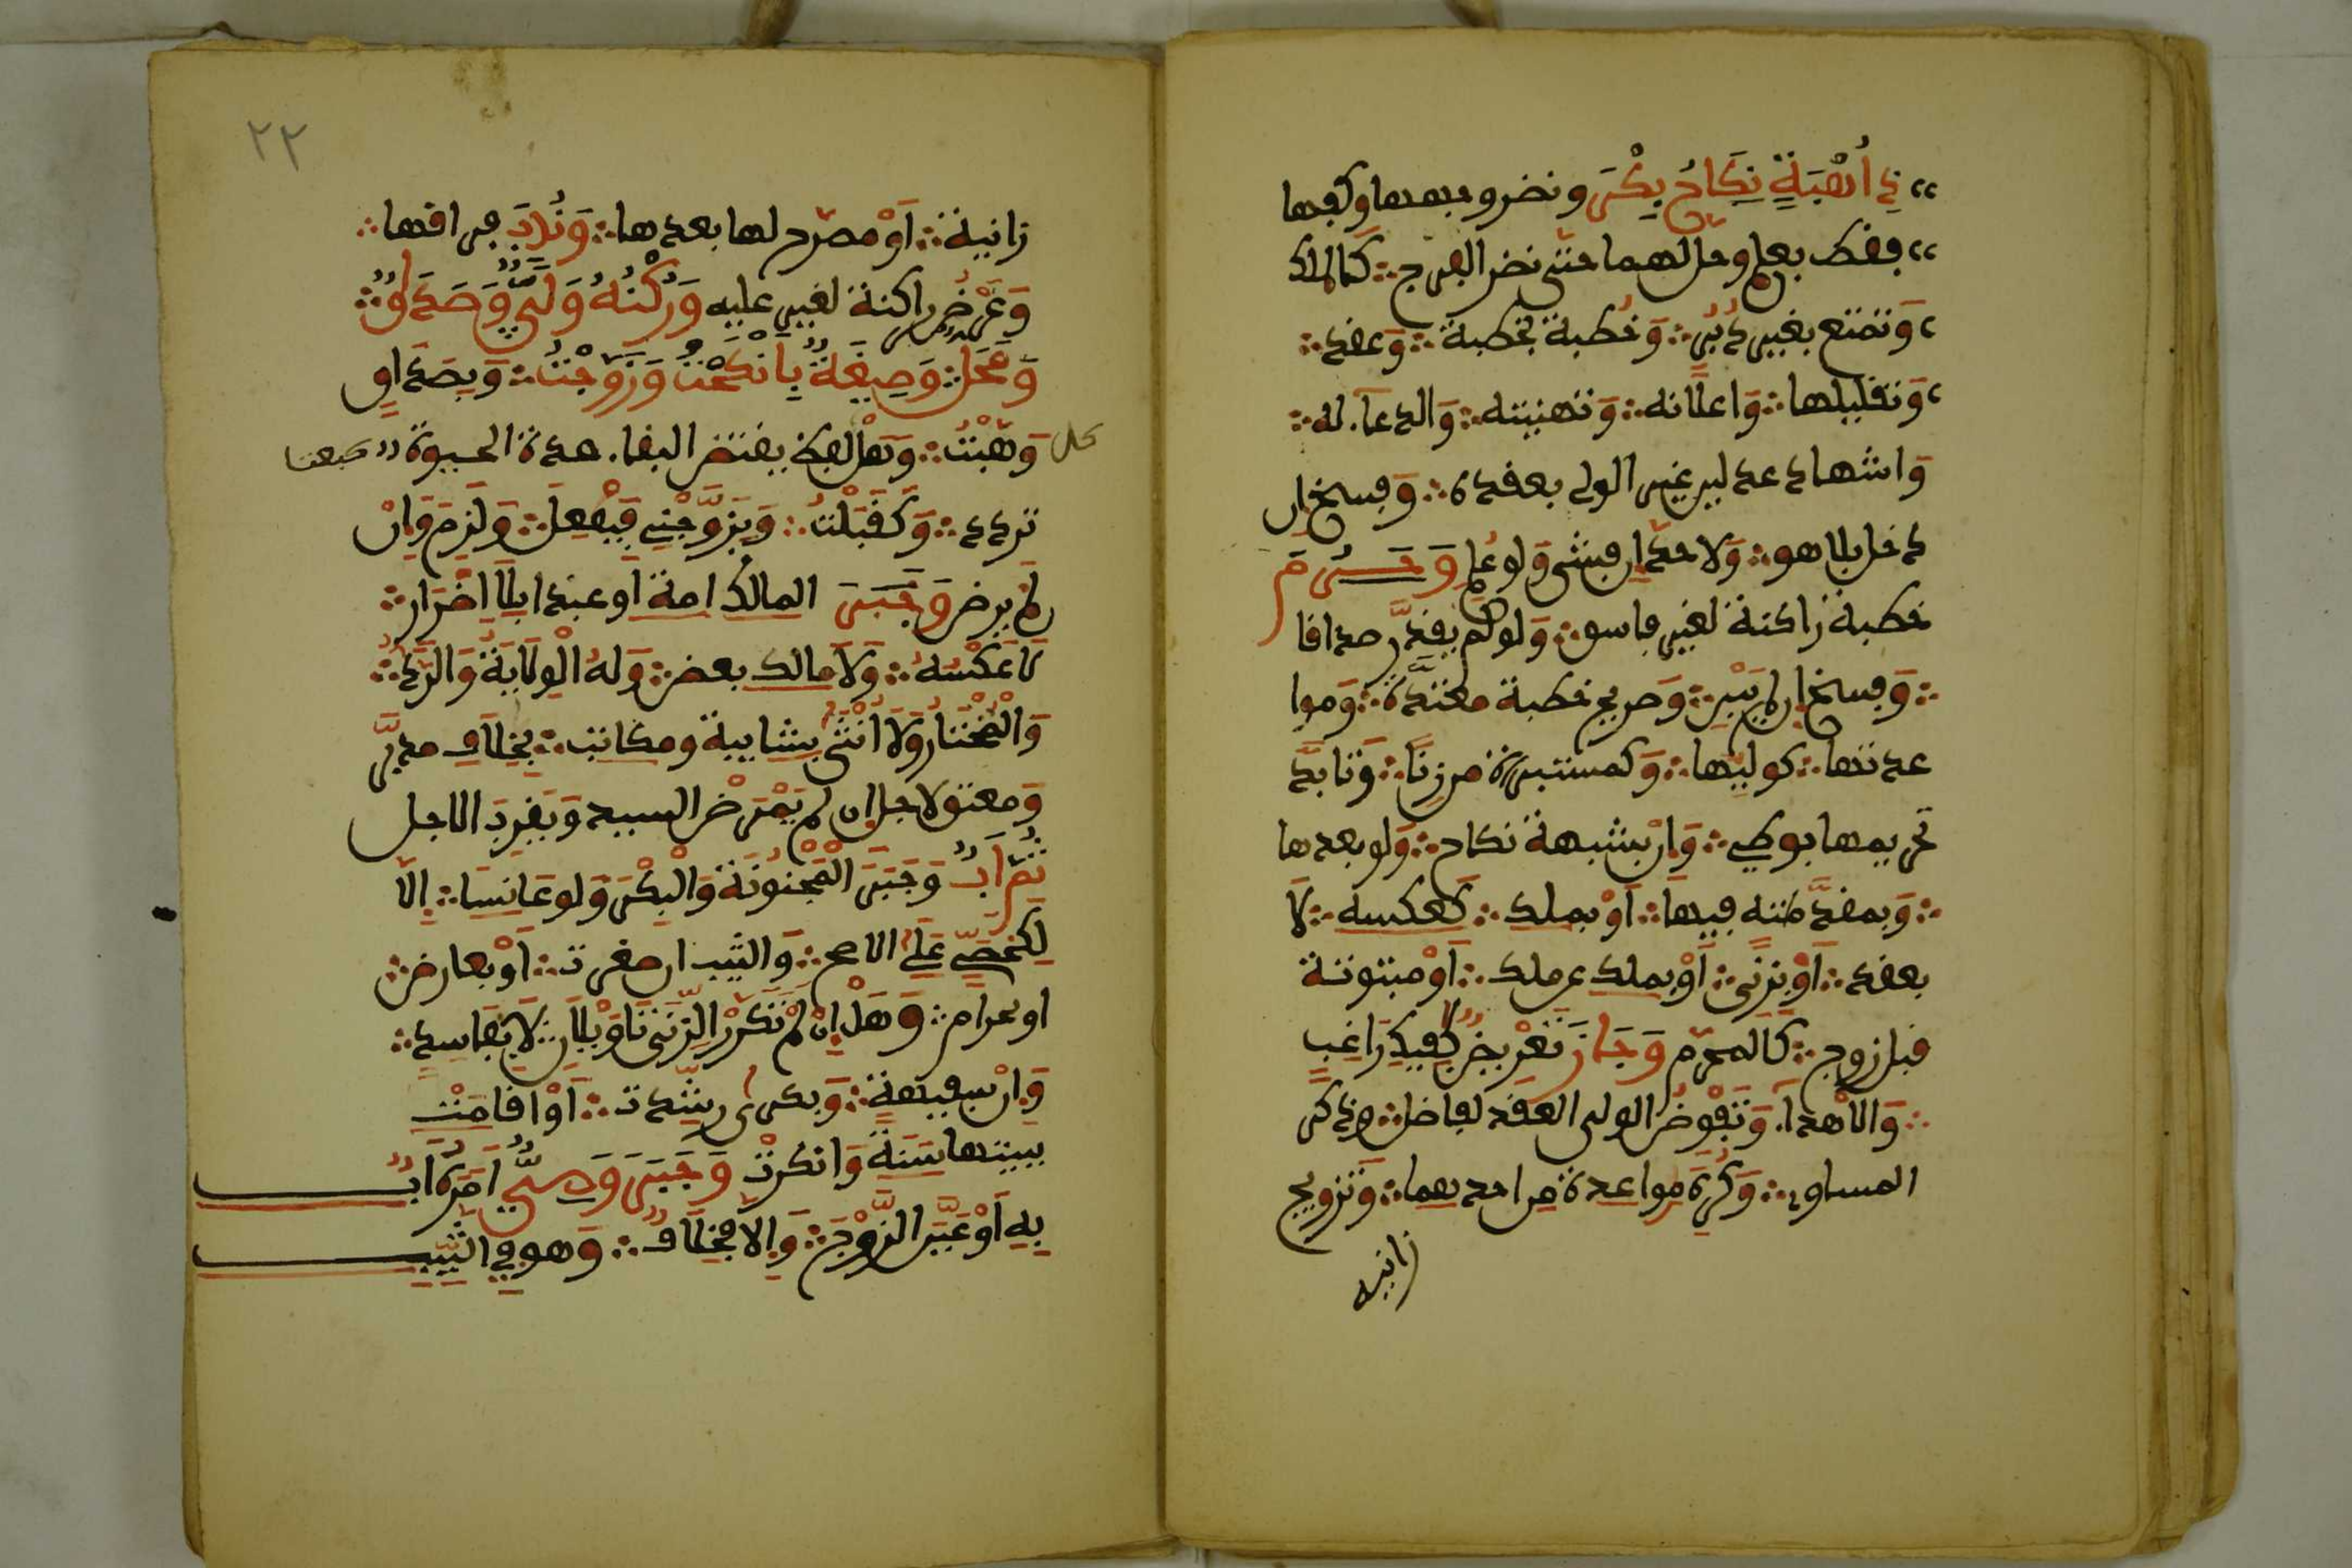 ذي أهبة نكاح بكر ونضر وجهها وكفيها
فقط بعلم وحل لهما حتى نضر الفرج كالملك
وتمتع بغير دبر وخطبة بخطبة وعقد
وتقليلها واعلانه وتهنيته والدعا له
واشهاد عدلين غير الولي بعقده وفسخ ان
دخلا بلاهو ولا حد ان فشى ولو علم وحرم
خطبة راكنة لغير فاسق ولو لم يقدر صداقا
وفسخ ان لم يبن وصريح خطبة معتدة ومواعدتها
عدتها كوليها وكمستبرأة من زنا وتأبد
تحريمها بوطي وان بشبهة نكاح ولو بعدها
وبمقدمته فيها او بملك كعكسه لا
بعقد او بزنى او بملك عن ملك او مبتوتة
قبل زوج كالمحرم وجاز تعريض كفيك راغب
والاهدا وتفويض الولي العقد لفاضل وذكر
المساوي وكره مواعدة من احدهما وتزويج
زانية
٢٢
زانية او مصرح لها بعدها وندب فراقها
وعرض راكنة لغير عليه وركنه ولي وصداق
ومحل وصيغة بأنكحت وزوجت وبصداق
وهبت وهل لفظ يقتضي البقا مدة الحيوة كبعت
كل
تردد وكقبلت وبزوجني فيفعل ولزم وان
لم يرض وجبر المالك امة او عبدا بلا اضرار
لا عكسه ولا مالك بعض وله الولاية والرد
والمختار ولا انثى بشايبة ومكاتب بخلاف مدبر
ومعتق لاجل ان لم يمرض السيد ويقرب الاجل
ثم اب وجبر المجنونة والبكر ولو عانسا الا
لكخصي على الاصح والثيب ان صغرت او بعارض
او بحرام وهل ان لم تكرر الزنى تاويلان لا بفاسد
وان سفيهة وبكرا رشدت او اقامت
ببيتها سنة وانكرت وجبر وصي امره اب
به او عين الزوج والا فخلاف وهو في الثيب